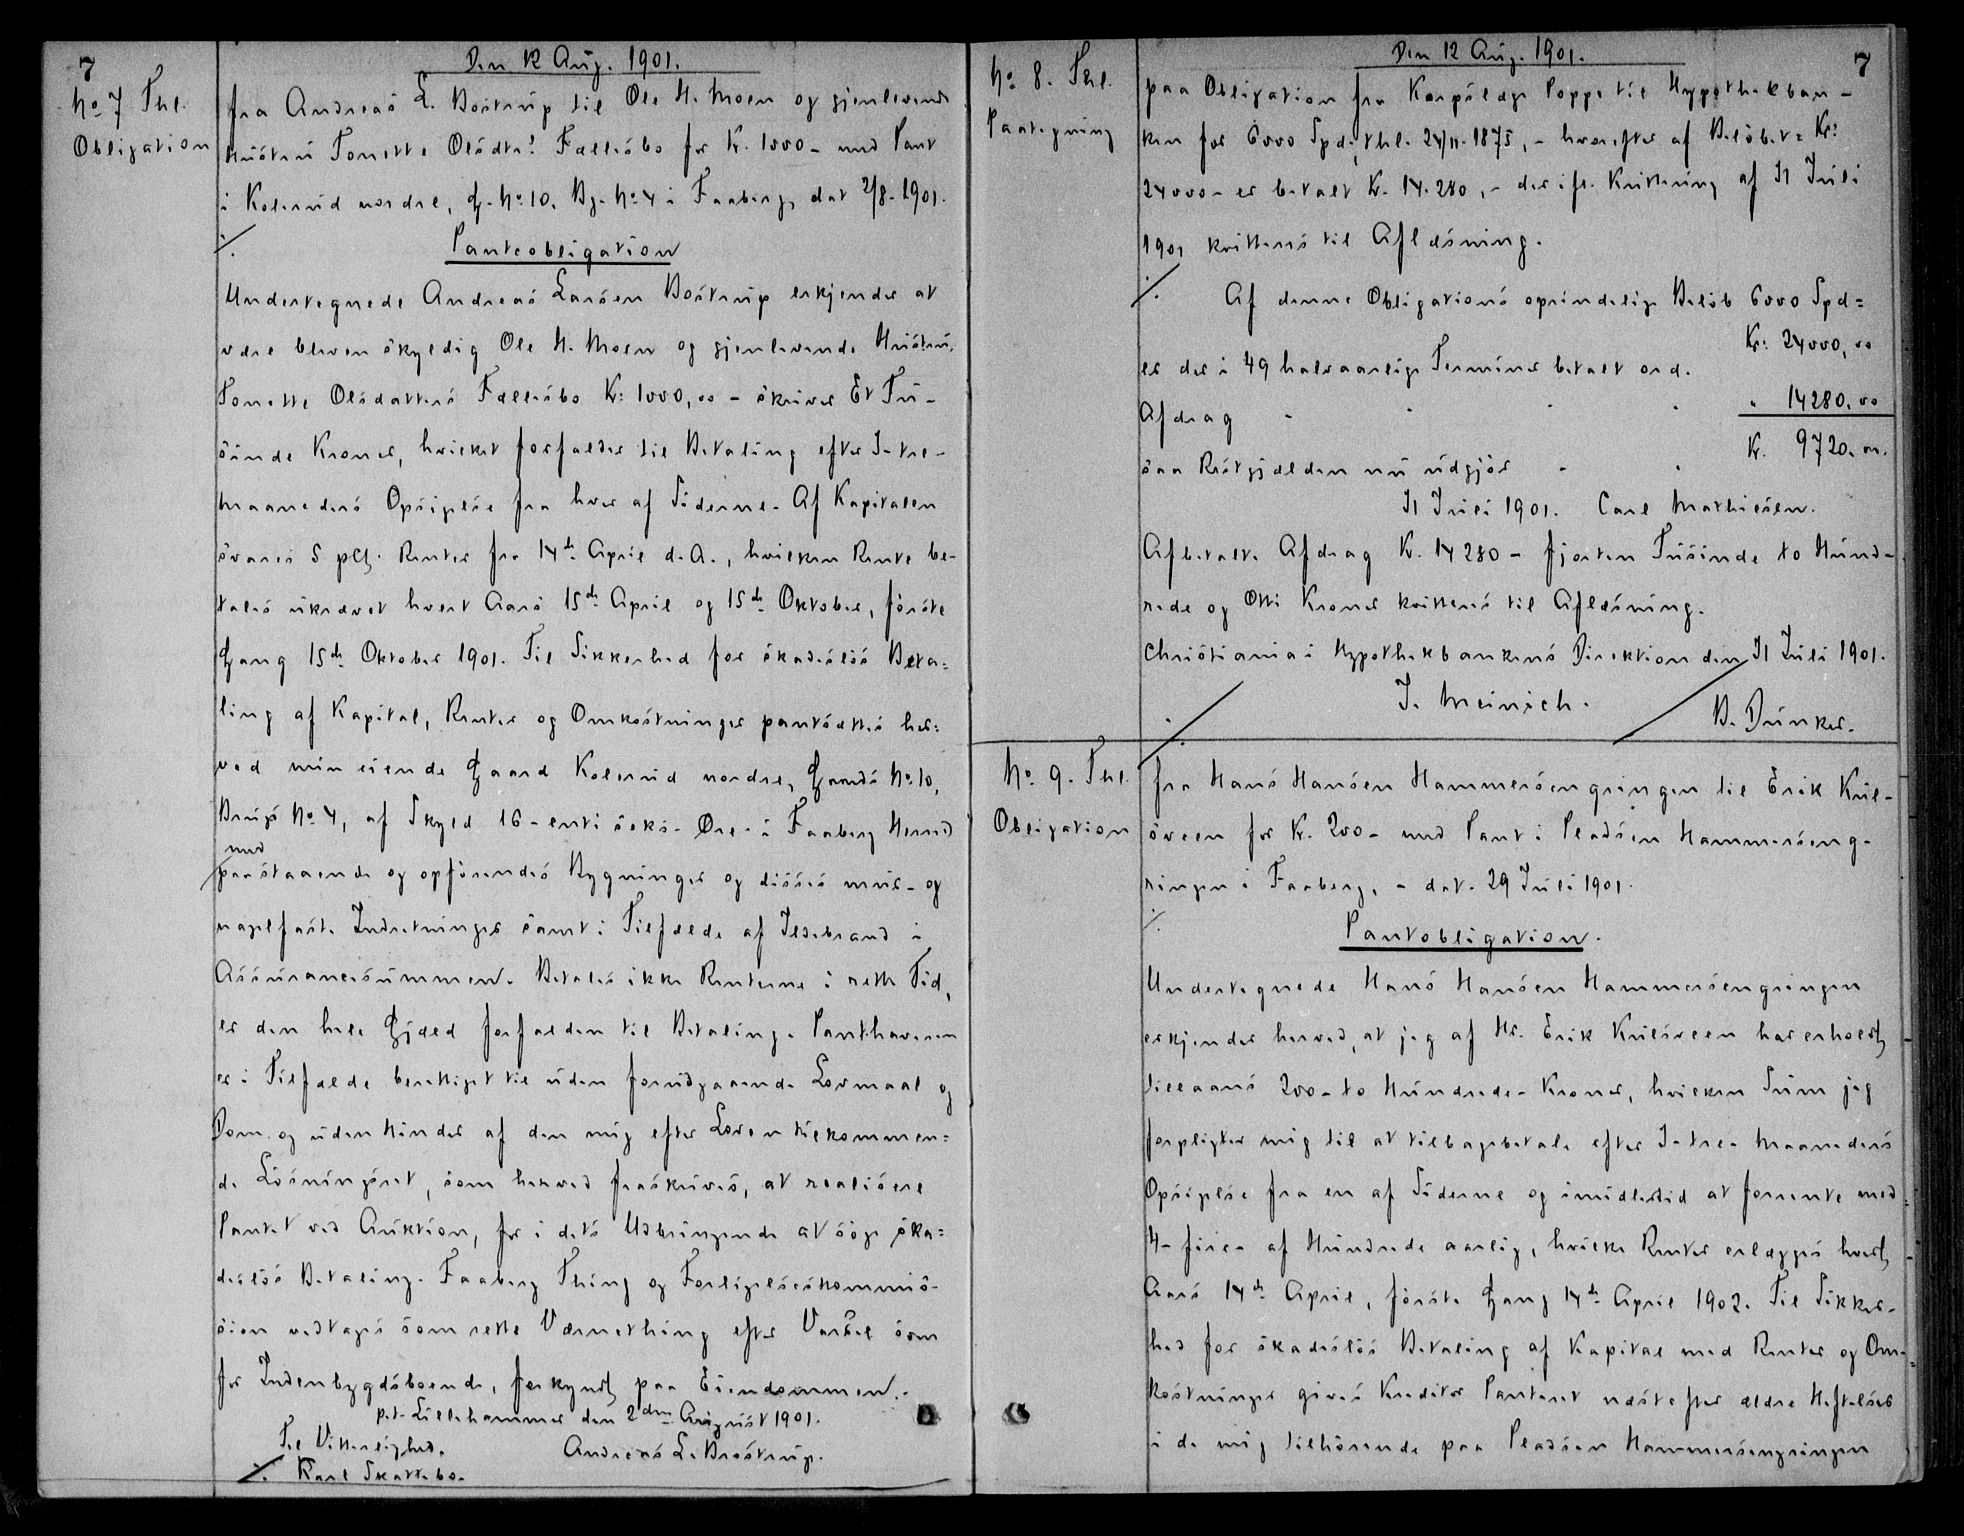 7
Den 12 Aug. 1901.
No 7 Thl.
Obligation
fra Andreas L. Bostrup til Ole H. Moen og gjenlevende
Hustru Tonette Olsdtr. Fællesbo for Kr. 1000 - med Pant
i Kolerud nordre, G. No 10, Bg. No 4 i Faaberg, dat 2/8-1901.
Panteobligation
Undertegnede Andreas Larsen Bostrup erkjender at
være bleven skyldig Ole H. Moen og gjenlevende Hustru,
Tonette Olsdatters Fællesbo Kr: 1000,00 - skriver Et Tu-
sinde Kroner, hvilket forfalder til Betaling efter 3-tre-
Maaneders Opsigelse fra hver af Siderne. Af Kapitalen
svares 5 pCt. Renter fra 14de April d. A., hvilken Rente be-
tales ukrævet hvert Aars 15de April og 15de Oktober, første
Gang 15de Oktober 1901. Til Sikkerhed for skadesløs Beta=
ling af Kapital, Renter og Omkostninger pantsættes her=
ved min eiende Gaard Kolerud nordre, Gaards No 10,
Brugs No 4, af Skyld 16-enti seks- Øre i Faaberg Herred
med
paastaaende og opførendes Bygninger og disses mur- og
nagelfaste Indretninger samt i Tilfælde af Ildebrand i
Assurancesummen. Betales ikke Renterne i rette Tid,
er den hele Gjæld forfalden til Betaling. Panthaveren
er i Tilfælde berettiget til uden forudgaaende Lovmaal og
Dom og uden Hinder af den mig efter Loven tilkommen=
de Løsningsret, som herved fraskrives, at realisere
Pantet ved Auktion, for i dets Udbringende at søge ska=
desløs Betaling. Faaberg Thing og Forligelseskommis-
sion vedtages som rette Værnething efter Varsel som
for Indenbygdsboende, forkyndt paa Eiendommen.
p.t. Lillehammer den 2den August 1901.
Til Vitterlighed.
Andreas L. Bostrup.
Karl Skattebo.
7
Den 12 Aug. 1901.
No 8. Thl.
Paategning
paa Obligation fra Poppe til Hypothekban-
ken for 6000 Spd. thl. 24/11-1875, - hvorefter af Beløbet = Kr:
24000- er betalt Kr. 14.280, - der ifl. Kvittering af 31 Juli
1901 kvitteres til Aflæsning.
Af denne Obligations oprindelige Beløb 6000 Spd=
Kr: 24000,00
er der i 49 halvaarlige Terminer betalt ord.
Afdrag - - - - " 14280,00
saa Restgjælden nu udgjør - - Kr. 9720.00.
31 Juli 1901. Carl Mathiesen.
Afbetalte Afdrag Kr. 14280 - fjorten Tusinde to Hund-
rede og Otti Kroner kvitteres til Aflæsning.
Christiania i Hypothekbankens Direktion den 31 Juli 1901.
J. Meinich.
B. Dunker.
No 9. Thl.
Obligation
fra Hans Hansen Hammersengringen til Erik Kuls-
sveen for Kr. 200 - med Pant i Pladsen Hammerseng-
ringen i Faaberg, - dat. 29 Juli 1901.
Pantobligation.
Undertegnede Hans Hansen Hammersengringen
erkjender herved, at jeg af Hr. Erik Kulsveen har erholdt
tillaans 200 - to Hundrede - Kroner, hvilken Sum jeg
forpligter mig til at tilbagebetale efter 3-tre- Maaneders
Opsigelse fra en af Siderne og imidlertid at forrente med
4- fire- af Hundrede aarlig, hvilke Renter erlægges hvert
Aars 14de April, første Gang 14de April 1902. Til Sikker-
hed for skadesløs Betaling af Kapital med Renter og Om-
kostninger gives Kreditor Panteret næstefter ældre Heftelser
i de mig tilhørende paa Pladsen Hammersengringen